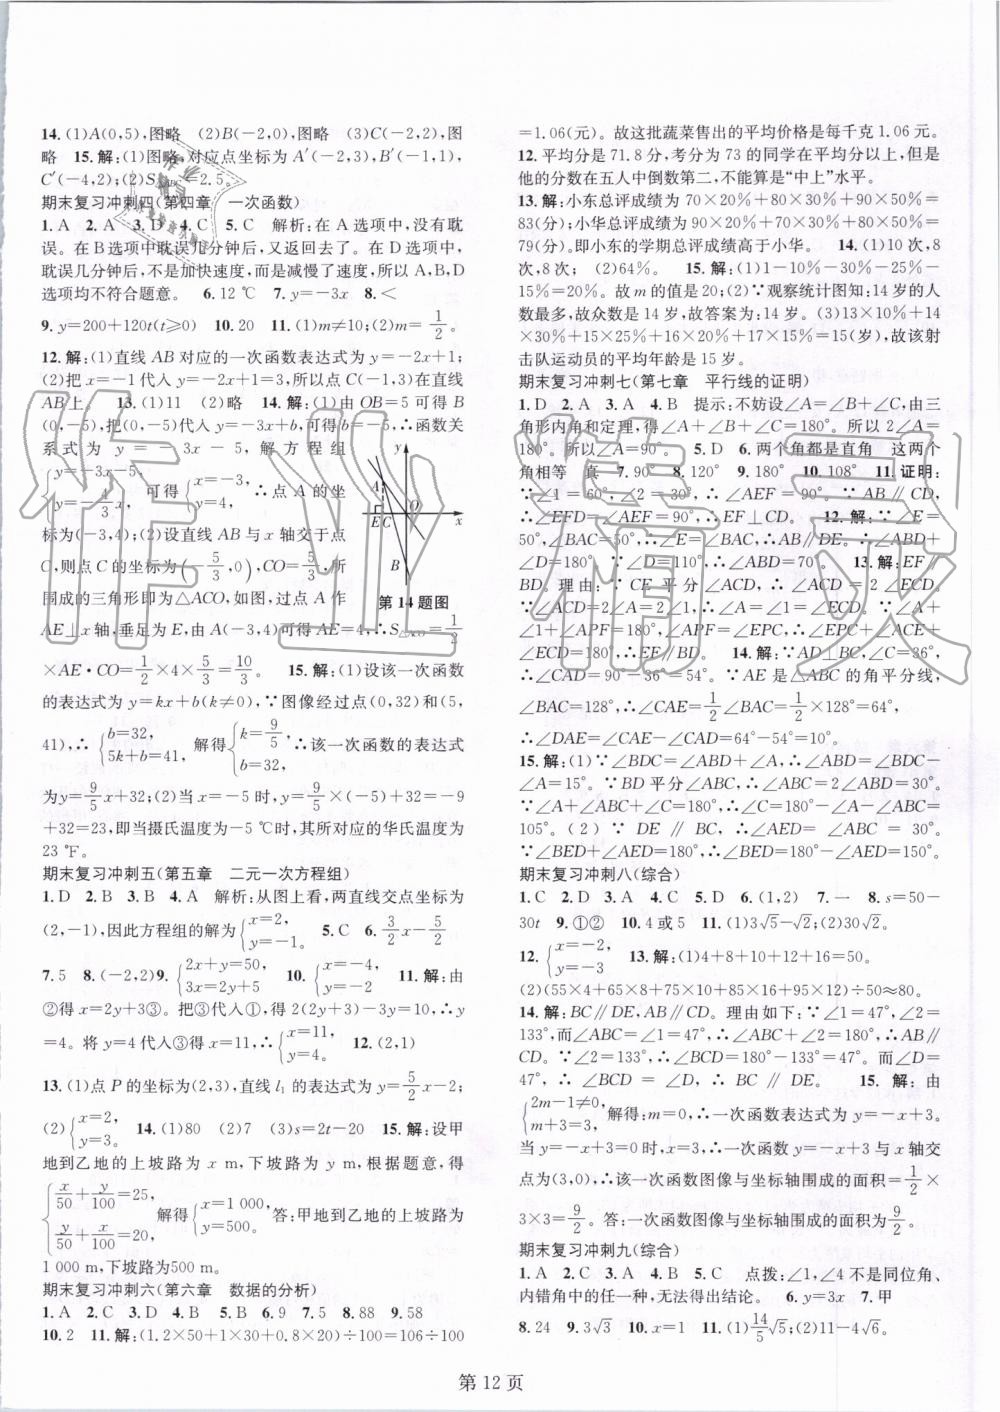 14.(1)A(0,5),图略　(2)B(-2,0),图略　(3)C(-2,2),图
略　15.解:(1)图略,对应点坐标为A′(-2,3),B′(-1,1),
C′(-4,2);(2)S△ABC=2.5。
期末复习冲刺四(第四章　一次函数)
1.A　2.A　3.D　4.C　5.C　解析:在A选项中,没有耽
误。在B选项中耽误几分钟后,又返回去了。在D选项中,
耽误几分钟后,不是加快速度,而是减慢了速度,所以A,B,D
选项均不符合题意。　6.12 ℃　7.y=-3x　8.<
9.y=200+120t(t≥0)　10.20　11.(1)m≠10;(2)m=1/2。
12.解:(1)直线AB对应的一次函数表达式为y=-2x+1;
(2)把x=-1代入y=-2x+1=3,所以点C在直线
AB上。　13.(1)11　(2)略　14.解:(1)由OB=5可得B
(0,-5),把(0,-5)代入y=-3x+b,可得b=-5,∴函数关
系式为y=-3x-5,解方程组
{y=-3x-5, y=-4/3x, 可得{x=-3, y=4, ∴点A的坐
标为(-3,4);(2)设直线AB与x轴交于点
C,则点C的坐标为(-5/3,0),CO=5/3,所
围成的三角形即为△ACO,如图,过点A作
A E C O x y B
第14题图
AE⊥x轴,垂足为E,由A(-3,4)可得AE=4,∴S△ACO=1/2
×AE·CO=1/2×4×5/3=10/3。　15.解:(1)设该一次函数
的表达式为y=kx+b(k≠0),∵图像经过点(0,32)和(5,
41),∴{b=32, 5k+b=41, 解得{k=9/5, b=32, ∴该一次函数的表达式
为y=9/5x+32;(2)当x=-5时,y=9/5×(-5)+32=-9
+32=23,即当摄氏温度为-5 ℃时,其所对应的华氏温度为
23 ℉。
期末复习冲刺五(第五章　二元一次方程组)
1.D　2.B　3.B　4.A　解析:从图上看,两直线交点坐标为
(2,-1),因此方程组的解为{x=2, y=-1。　5.C　6.3/2x-5/2
7.5　8.(-2,2)9.{2x+y=50, 3x=2y+5　10.{x=-3, y=-2　11.解:由
②得x=2y+3③。把③代入①,得2(2y+3)-3y=10,∴y
=4。将y=4代入③得x=11,∴{x=11, y=4。　12.(2,1)
13.(1)点P的坐标为(2,3),直线l₁的表达式为y=5/2x-2;
(2){x=2, y=3。　14.(1)80　(2)7　(3)s=2t-20　15.解:设甲
地到乙地的上坡路为x m,下坡路为y m,根据题意,得
{x/50+y/100=25, y/50+x/100=20, 解得{x=1 000, y=500。 答:甲地到乙地的上坡路为
1 000 m,下坡路为500 m。
期末复习冲刺六(第六章　数据的分析)
1.A　2.C　3.D　4.B　5.B　6.9　7.5　8.88　9.58
10.2　11.解:(1.2×50+1×30+0.8×20)÷100=106÷100
=1.06(元)。故这批蔬菜售出的平均价格是每千克1.06元。
12.平均分是71.8分,考分为73的同学在平均分以上,但是
他的分数在五人中倒数第二,不能算是“中上”水平。
13.解:小东总评成绩为70×20%+80×30%+90×50%=
83(分);小华总评成绩为90×20%+70×30%+80×50%=
79(分)。即小东的学期总评成绩高于小华。　14.(1)10次,8
次,8次;　(2)64%。　15.解:(1)1-10%-30%-25%-
15%=20%。故m的值是20;(2)∵观察统计图知:14岁的人
数最多,故众数是14岁,故答案为:14岁。(3)13×10%+14
×30%+15×25%+16×20%+17×15%=15(岁),故该射
击队运动员的平均年龄是15岁。
期末复习冲刺七(第七章　平行线的证明)
1.D　2.A　3.A　4.B　提示:不妨设∠A=∠B+∠C,由三
角形内角和定理,得∠A+∠B+∠C=180°。所以2∠A=
180°。所以∠A=90°。　5.D　6.两个角都是直角　这两
个角相等　真　7.90°　8.120°　9.180°　10.108°　11.证明:
∵∠1=60°,∠2=30°,∴∠AEF=90°。∵AB∥CD,
∴∠EFD=∠AEF=90°,∴EF⊥CD。　12.解:∵∠E=
50°,∠BAC=50°,∴∠E=∠BAC,∴AB∥DE。∴∠ABD+
∠D=180°,∵∠D=110°,∴∠ABD=70°。　13.解:EF∥
BD。理由:∵CE平分∠ACD,∴∠ACD=2∠ECD。
∵∠APF=∠EPC,∠1=∠ECD,∠A=∠ACE。∵∠A+
∠1+∠APF=180°,∴∠EPC+∠ACE+
∠ECD=180°,∴EF∥BD。　14.解:∵AD⊥BC,∠C=36°,
∴∠CAD=90°-36°=54°。∵AE是△ABC的角平分线,
∠BAC=128°,∴∠CAE=1/2∠BAC=1/2×128°=64°,
∴∠DAE=∠CAE-∠CAD=64°-54°=10°。
15.解:(1)∵∠BDC=∠ABD+∠A,∴∠ABD=∠BDC-
∠A=15°。∵BD平分∠ABC,∴∠ABC=2∠ABD=30°。
∵∠A+∠ABC+∠C=180°,∴∠C=180°-∠A-∠ABC=
105°。(2)∵DE∥BC,∴∠AED=∠ABC=30°。
∵∠BED+∠AED=180°,∴∠BED=180°-∠AED=150°。
期末复习冲刺八(综合)
1.C　2.D　3.C　4.C　5.D　6.(1,2)　7.一　8.s=50-
30t　9.①②　10.4或5　11.(1)3√5-√2;(2)30√2。
12.{x=-2, y=-3　13.解:(1)4+8+10+12+16=50。
(2)(55×4+65×8+75×10+85×16+95×12)÷50≈80。
14.解:BC∥DE,AB∥CD。理由如下:∵∠1=47°,∠2=
133°,而∠ABC=∠1=47°,∴∠ABC+∠2=180°,∴AB∥
CD。∵∠2=133°,∴∠BCD=180°-133°=47°。而∠D=
47°,∴∠BCD=∠D,∴BC∥DE。　15.解:由
{2m-1≠0, m+3=3, 解得:m=0,∴一次函数表达式为y=-x+3。
当y=-x+3=0时,x=3,∴一次函数y=-x+3与x轴交
点为(3,0),∴该一次函数图像与坐标轴围成的面积=1/2×
3×3=9/2。答:一次函数图像与坐标轴围成的面积为9/2。
期末复习冲刺九(综合)
1.A　2.C　3.A　4.B　5.C　点拨:∠1,∠4不是同位角、
内错角中的任一种,无法得出结论。　6.y=3x　7.甲
8.24　9.3√3　10.x=1　11.(1)14/5√5;(2)11-4√6。
第12页